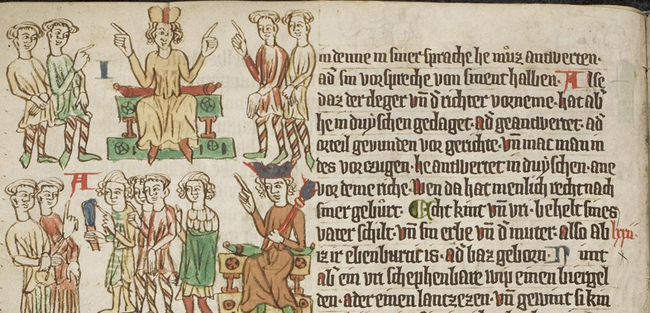 I
in denne in siner sprache he muͦz antwerten·
ad sin vorspreche von sinent halben· Alse
daz der cleger vn̄ d richter vorneme· hat ab
he in duͤzschen geclaget· ad geantwertet· ad
orteil gevunden vor gerichte· vn̄ mac man in
des vorczugen· he antwertet in duͤzschen· ane
vor deme riche· wen da hat menlich recht nach
A
siner gebuͦrt· Echt kint vn̄ vri· behelt sines
vater schilt· vn̄ sin erbe vn̄ d muter· also ab lxxii
iz ir ebenburtic is· ad baz geborn· Nimt
ab ein vri schephenbare wip einen biergel
den· ader einen lantzezen· vn̄ gewint si kin